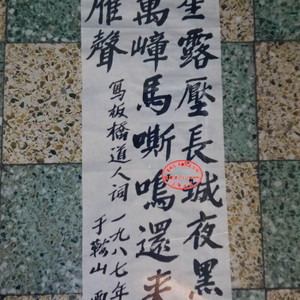 露壓長城夜黑
萬嶂馬嘶鳴還来
雁聲
寫板橋道人词
一九八七年
于鞍山